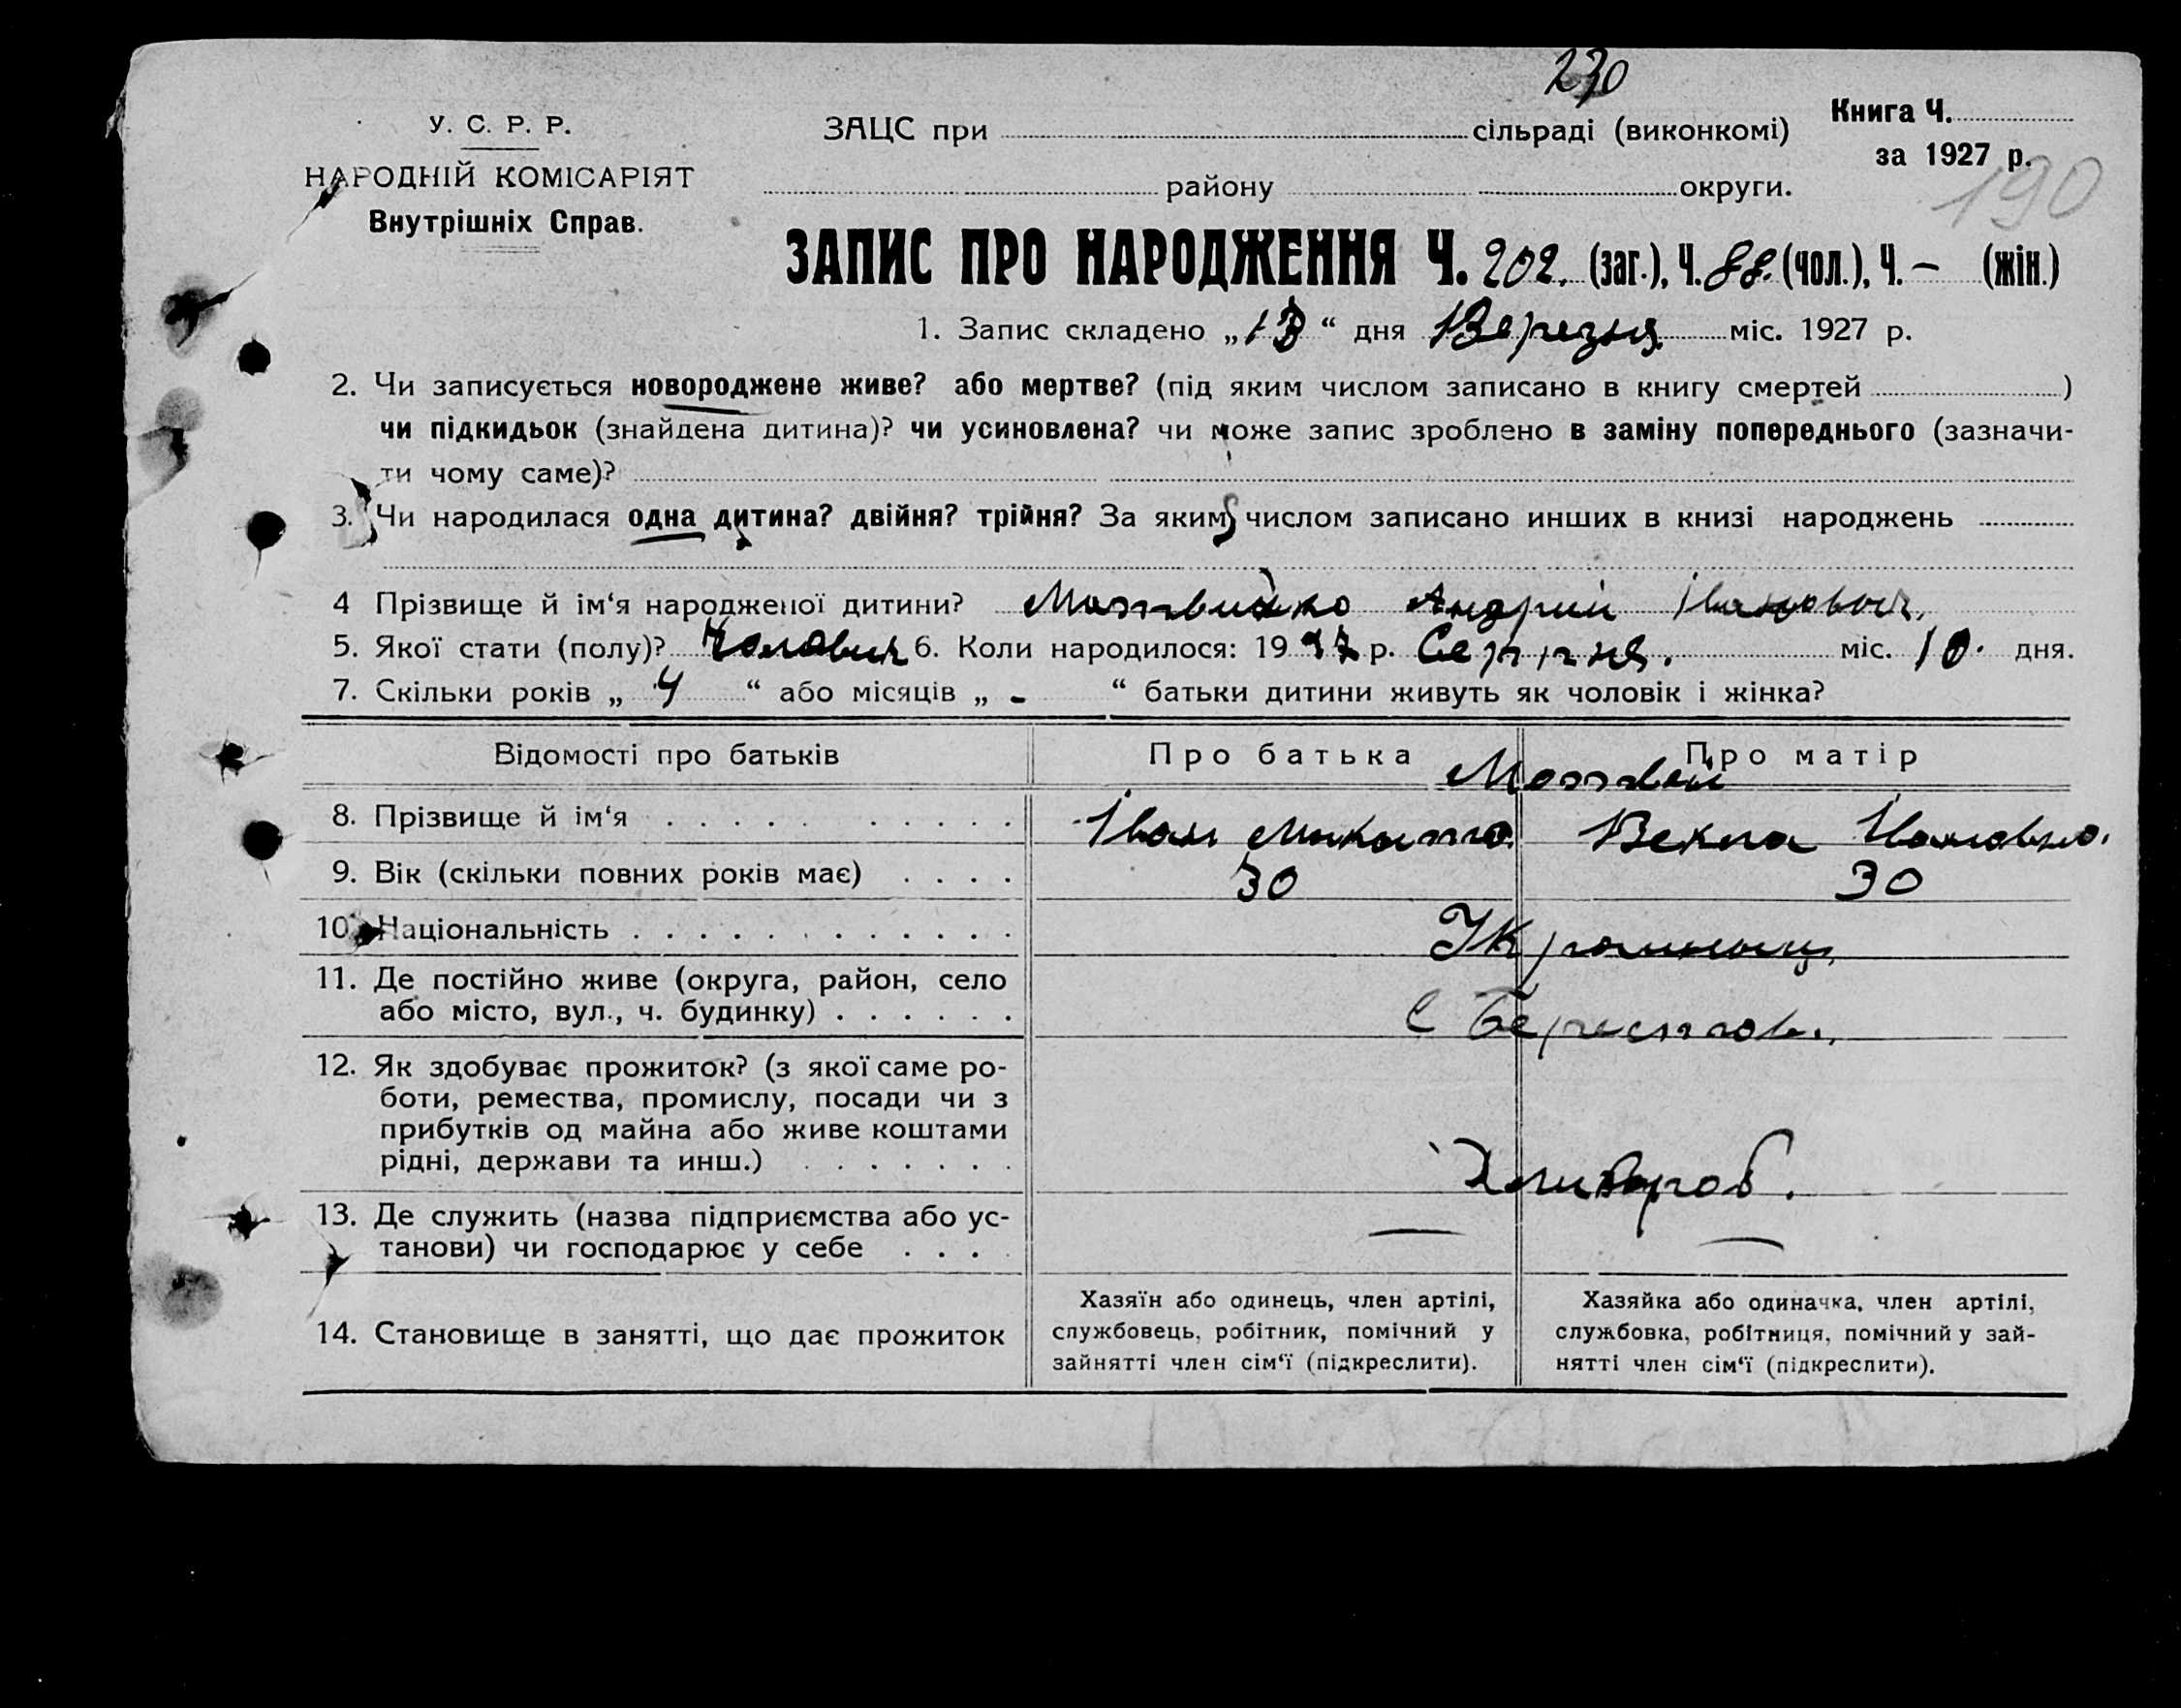 230
У. С. Р. Р.
НАРОДНІЙ КОМІСАРІЯТ
Внутрішніх Справ.
ЗАЦС при сільраді (виконкомі)
району округи.
Книга Ч.
за 1927 р.
190
ЗАПИС ПРО НАРОДЖЕННЯ Ч. 202. (заг.), Ч. 88. (чол.), Ч. – (жін.)
1. Запис складено „13“ дня Березня міс. 1927 р.
2. Чи записується новороджене живе? або мертве? (під яким числом записано в книгу смертей )
чи підкидьок (знайдена дитина)? чи усиновлена? чи може запис зроблено в заміну попереднього (зазначи-
ти чому саме)?
3. Чи народилася одна дитина? двійня? трійня? За яким числом записано инших в книзі народжень
4 Прізвище й ім‘я народженої дитини? Андрий Іванович.
5. Якої стати (полу)? Чоловик 6. Коли народилося: 19 р. Серпня. міс. 10. дня.
7. Скільки років „ 4 “ або місяців „ - “ батьки дитини живуть як чоловік і жінка?
Відомості про батьків Про батька Про матір
8. Прізвище й ім‘я Іван Микита Векла Ивановна.
9. Вік (скільки повних років має) 30 30
10. Національність
11. Де постійно живе (округа, район, село
або місто, вул., ч. будинку) с Берестов.
12. Як здобуває прожиток? (з якої саме ро-
боти, ремества, промислу, посади чи з
прибутків од майна або живе коштами
рідні, держави та инш.) Хлибороб.
13. Де служить (назва підприємства або ус-
танови) чи господарює у себе — —
14. Становище в занятті, що дає прожиток
Хазяїн або одинець, член артілі,
службовець, робітник, помічний у
зайнятті член сім‘ї (підкреслити).
Хазяйка або одиначка, член артілі,
службовка, робітниця, помічний у зай-
нятті член сім‘ї (підкреслити).